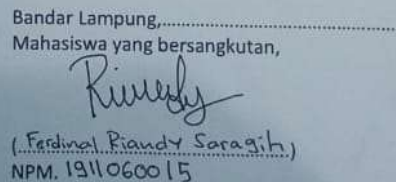 Bandar Lampung,..................................................
Mahasiswa yang bersangkutan,
( Ferdinal Riandy Saragih )
NPM. 1911060015